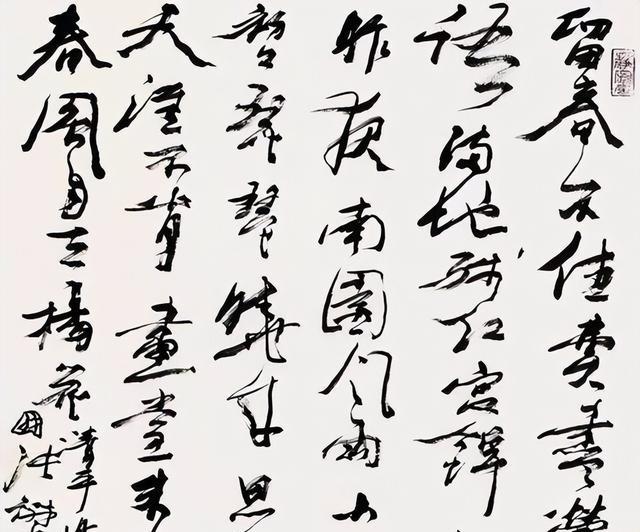 留春不住費盡鶯
語滿地殘紅宮錦
昨夜南園風雨小
初上琵琶曉來思
天涯不肯畫堂朱
春風自在楊花 清平